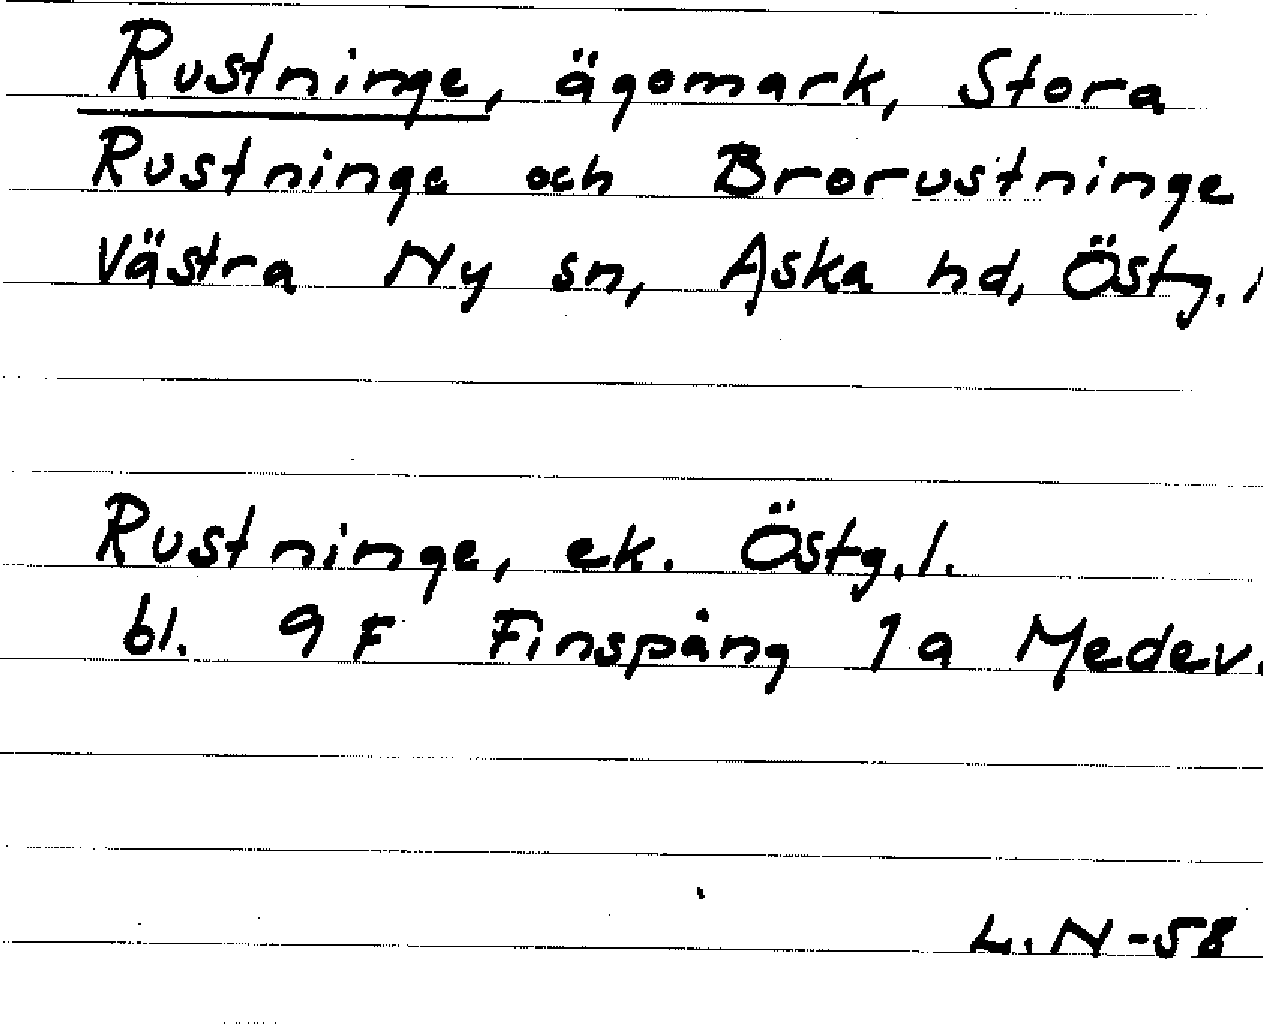 Rustninge, ägomark, Stora
Rustninge och Brorustninge
Västra Ny sn, Aska hd, Östg. l
Rustninge, ek. Östg. l.
bl. 9 F Finspång 1 a Medev.
L. N -58